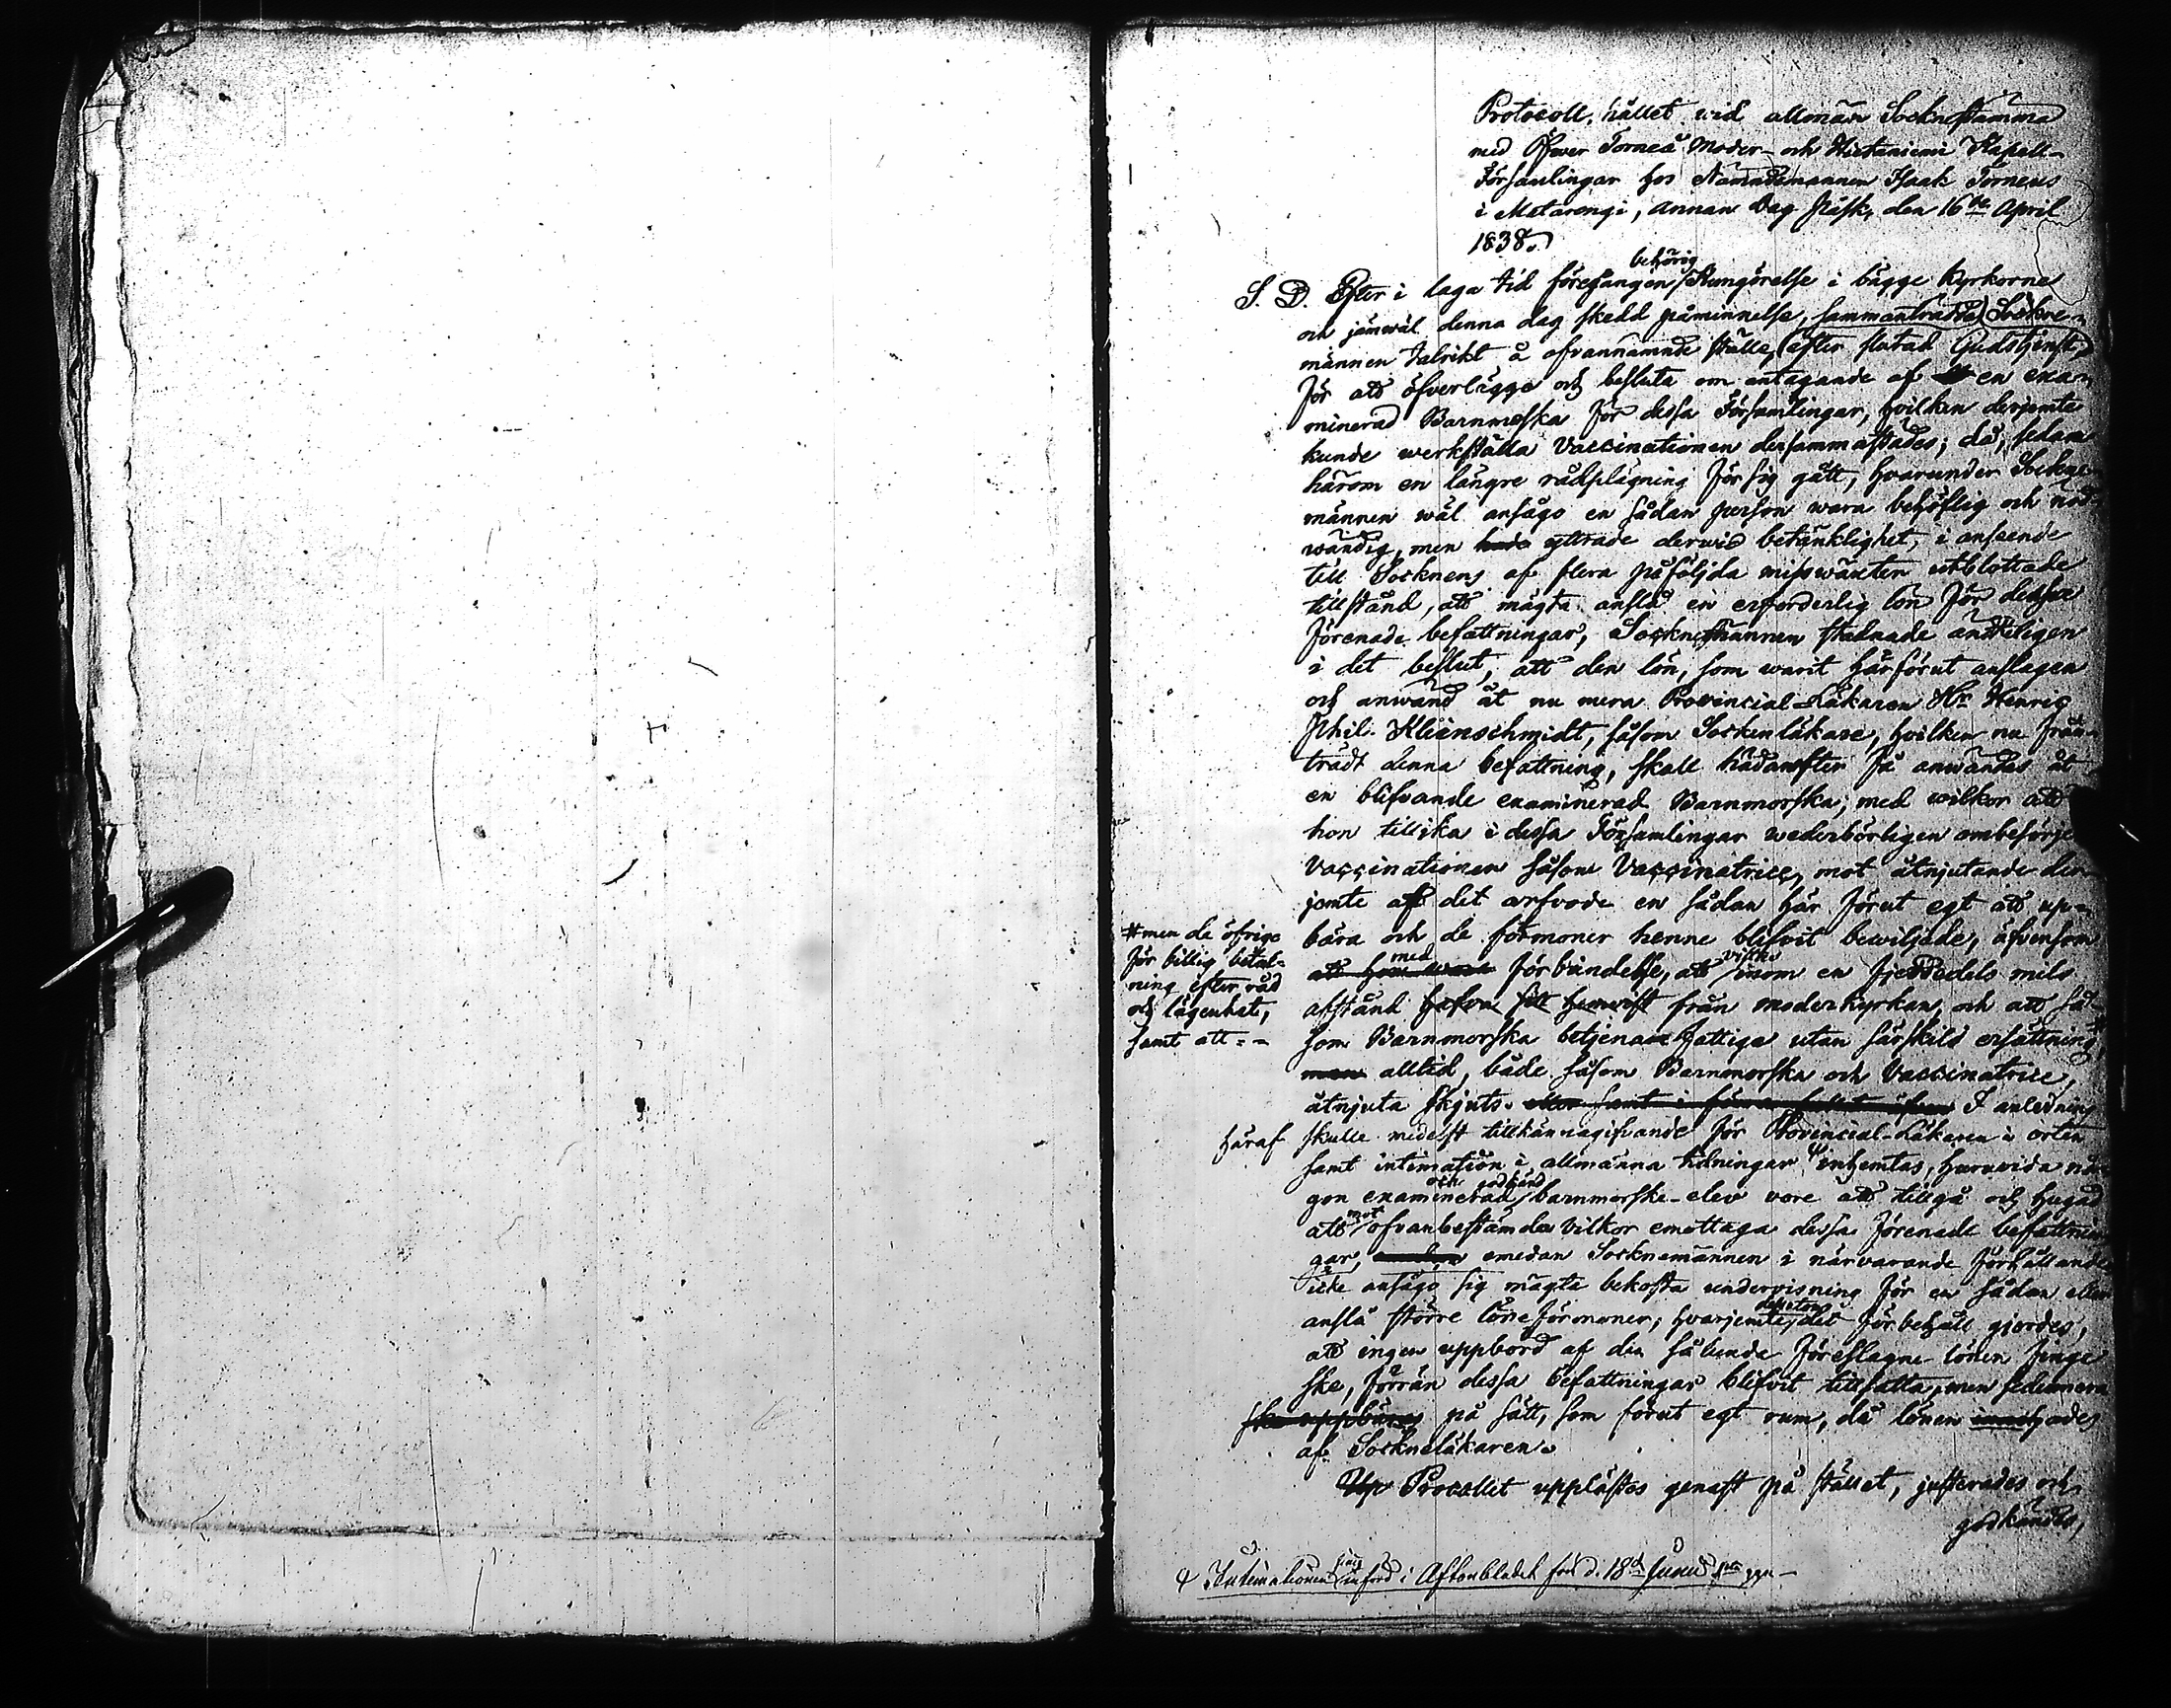 Protocoll, hållet wid allmän Socknestämma
med Öfwer Torneå Moder- och Hietaniemi Kapell-
Församlingar hos Nämndemannen Isaak Torneus
i Matarengi, Annan Dag Påsk, den 16de April
1838.
behörig
S. D. Efter i laga tid föregången Kungörelse i bägge Kyrkorne
och jämwäl denna dag skedd påminnelse, sammanträdde Sockne-
männen talrikt å ofvannämnde ställe, efter slutad Gudstjenst,
för att öfverlägga och besluta om antagande af en exa-
minerad Barnmorska för dessa Församlingar, hvilken derjemte
kunde werkställa Vaccinationen dersammastädes; då, sedan
härom en längre rådplägning för sig gått, hvarunder Sockne-
männen wäl ansågo en sådan person wara behöflig och nöd-
wändig, men hade yttrade derwid betänklighet, i anseende
till Socknens af flera påföljda misswäxter utblottade
tillstånd, att mägta anslå en erforderlig lön för dessa
förenade befattningar, Socknemännen stadnade ändteligen
i det beslut, att den lön, som warit härförut anslagen
och anwänd åt nu mera Provincial-Läkaren Hr Henric
Phil. Kleinschmidt, såsom Sockenläkare, hvilken nu från-
trädt denna befattning, skall hädanefter få anwändas åt
en blifvande examinerad Barnmorska, med wilkor att
hon tillika i dessa Församlingar wederbörligen ombesörjer
Vaccinationen såsom Vaccinatrice, mot åtnjutande der-
jemte af det arfvode en sådan här förut egt att up-
bära och de förmoner henne blifvit bewiljade, äfvensom
#men de öfrige
för billig betal-
ning efter råd
och lägenhet,
samt att = -
med vistas
att hon wara förbindelse, att inom en fjerdedels mils
afstånd hafva sitt hemvist från moderkyrkan, och att så-
som Barnmorska betjena fattiga utan särskild ersättning #
men alltid, både såsom Barnmorska och Vaccinatrice,
åtnjuta skjuts. I anledning
häraf skulle medelst tillkännagifvande för Provincial-Läkaren i orten
samt intimation i allmänna tidningar inhemtas, huruvida nå-
och godkänd
gon examinerad barnmorske-elev vore att tillgå och hugad
mot
att ofvanbestämda vilkor emottaga dessa förenade befattnin-
gar, emedan Socknemännen i närvarande förhållande
icke ansågo sig mägta bekosta undervisning för en sådan eller
dessutom
anslå större löneförmoner; hvarjemte det förbehåll gjordes,
att ingen uppbörd af den sålunda föreslagne lönen finge
ske, förrän dessa befattningar blifvit tillsatta, men sedermera
ske uppbäras på sätt, som förut egt rum, då lönen innehades
af Sockneläkaren.
Protocollet upplästes genast på stället, justerades och
godkändes,
Intimationen införd i Aftonbladet för d. 18de Junii